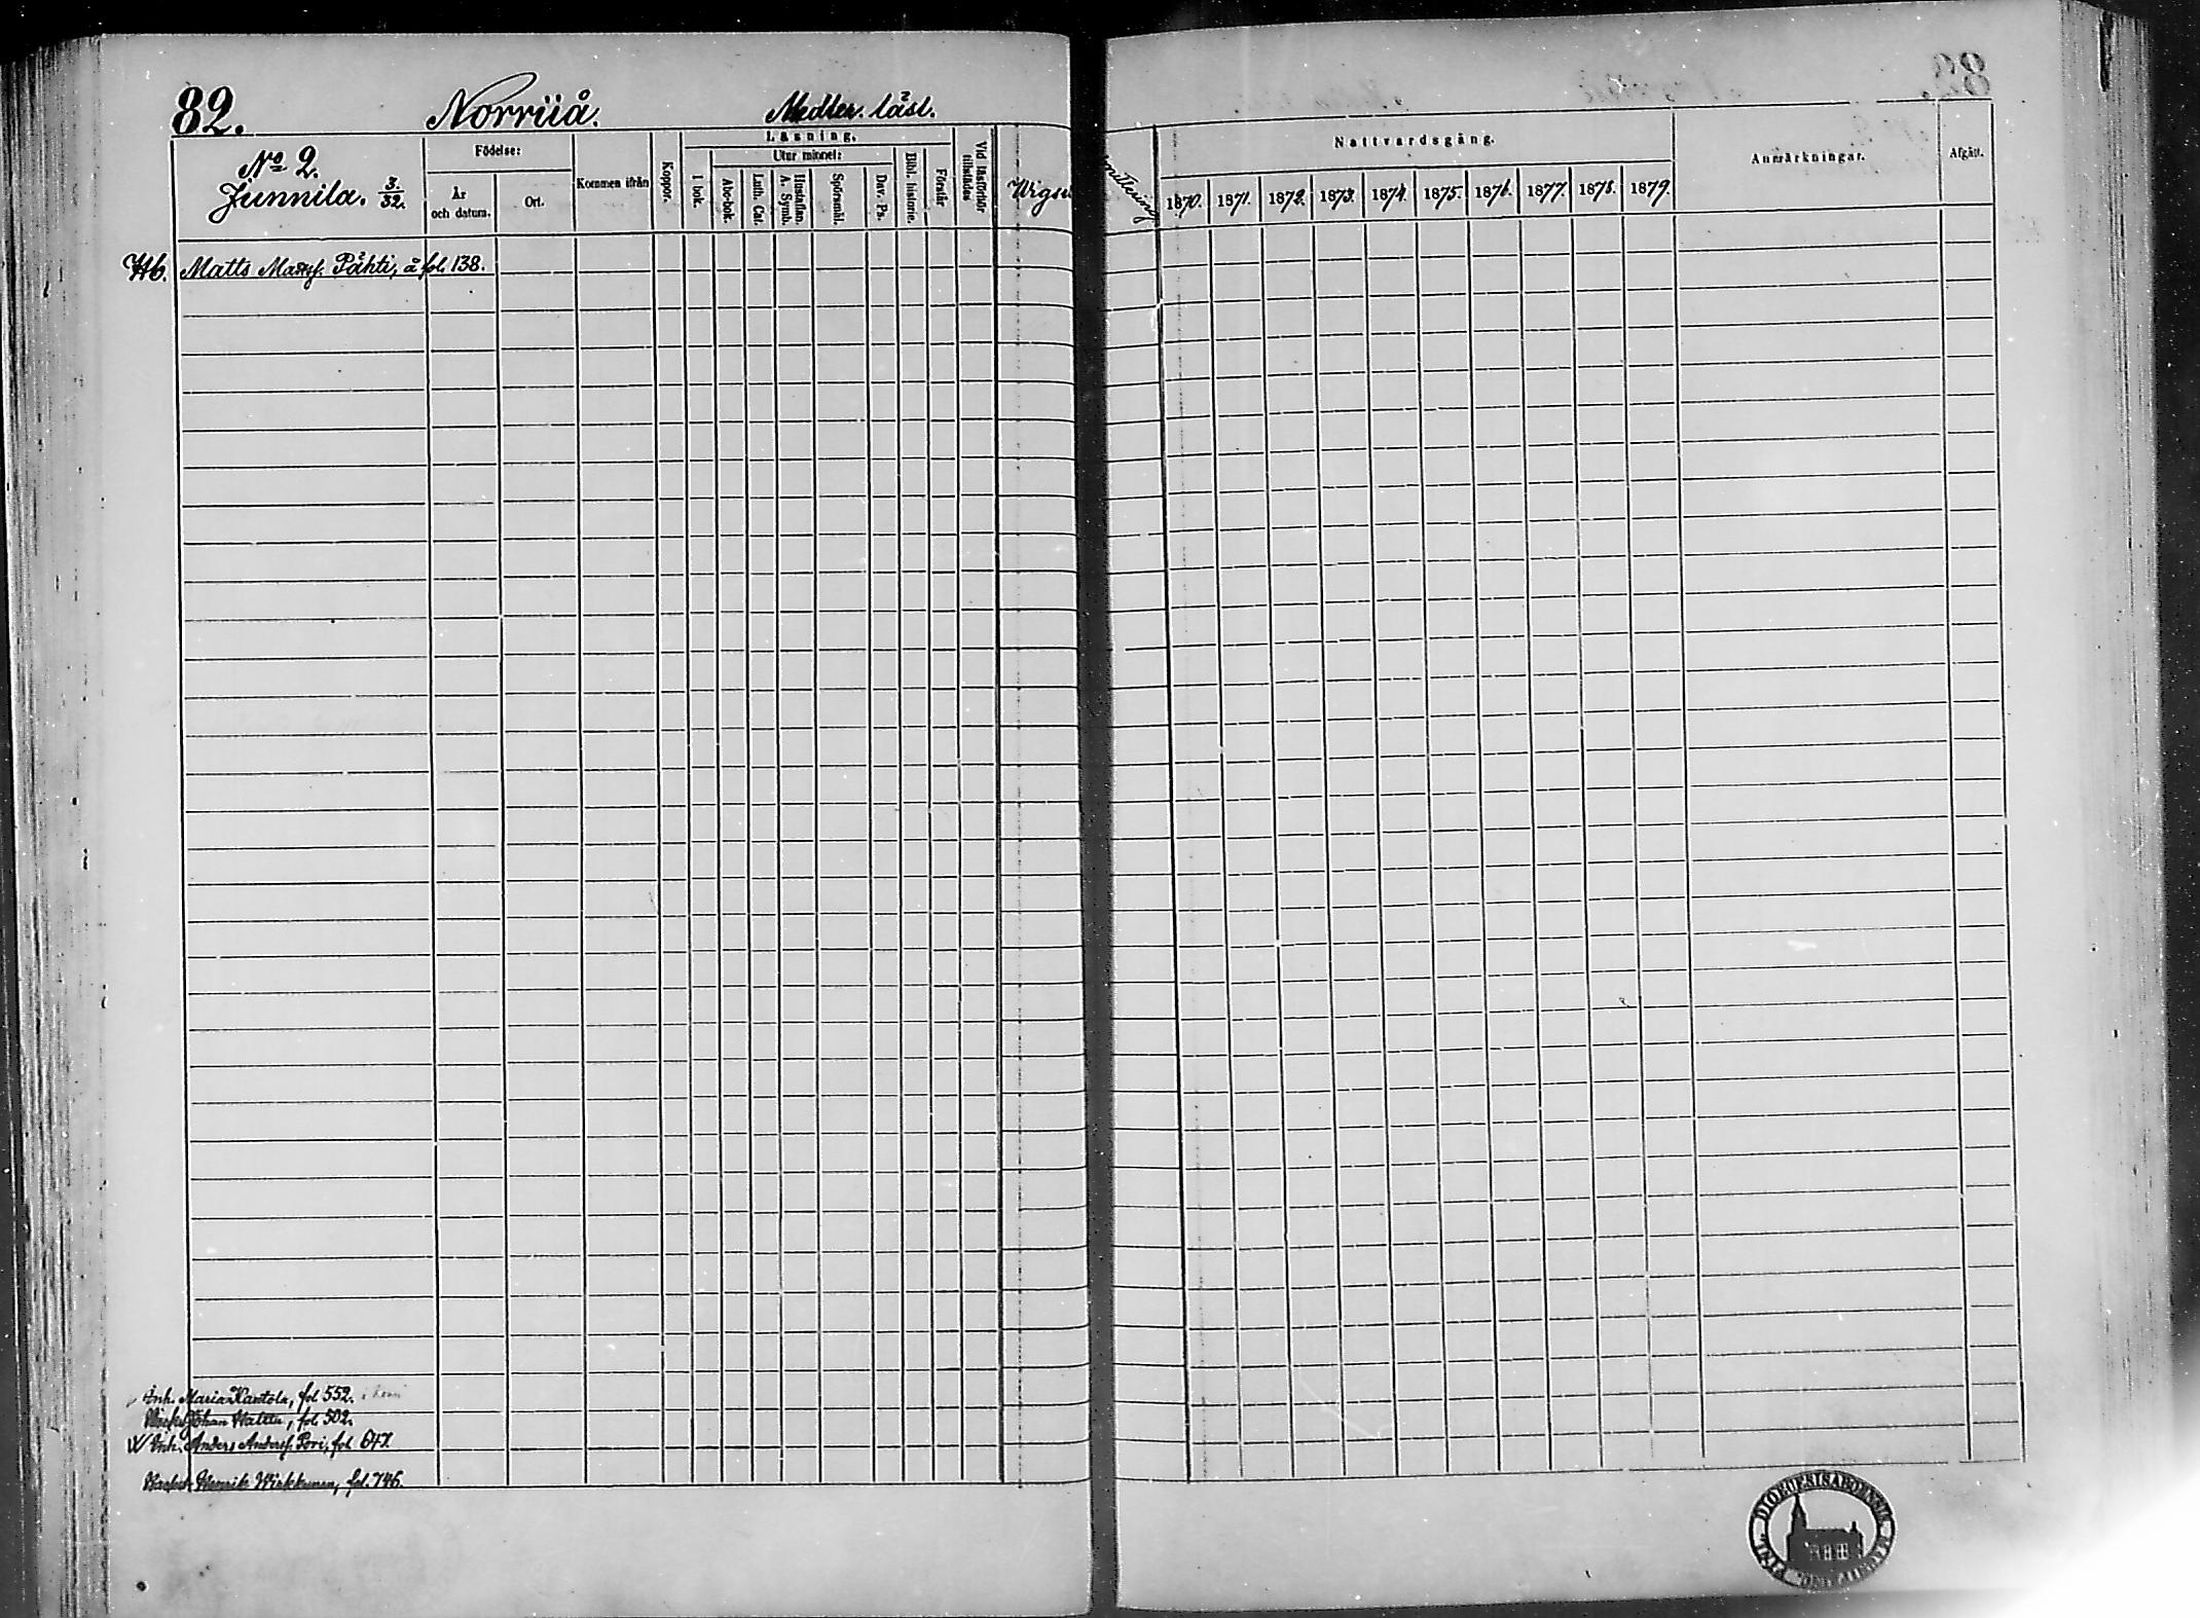 82. Norrüå. Medter. låsl.
No 2.
Junnila. 3/32.
Födelse:
År
och datum.
Ort.
Kommen ifrån
Koppor.
Läsning.
I bok.
Utur minnet:
Abc-bok.
Luth. Cat.
Hustaflan.
A. Symb.
Spörsmål.
Dav. Ps.
Bibl. historie.
Förstår
Vid läsförhör
tillstädes
Nattvardsgång.
1870. 1871. 1872. 1873. 1874. 1875. 1876. 1877. 1878. 1879.
Anmärkningar.
Afgått.
Hb. Matts Matsf. Påhti, å fol. 138.
Inh. Maria Kantola, fol 552.
Johan Wattu, fol 502.
Inh. Anders Andersf. Pori, fol. 647.
Henrik Wirkkunen, fol. 746.